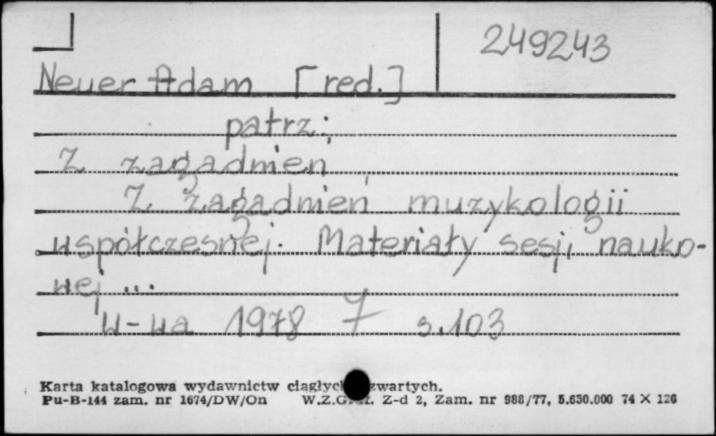 249243
Neuer Adam [red.]
patrz:
Z zagadnień
Z zagadnień muzykologii
współczesnej. Materiały sesji nauko-
wej ...
W-wa 1978 7 s.103
Karta katalogowa wydawnictw ciągłych zwartych.
Pu-B-144 zam. nr 1674/DW/On W.Z.Graf. Z-d 2, Zam. nr 988/77, 5.650.000 74 X 126